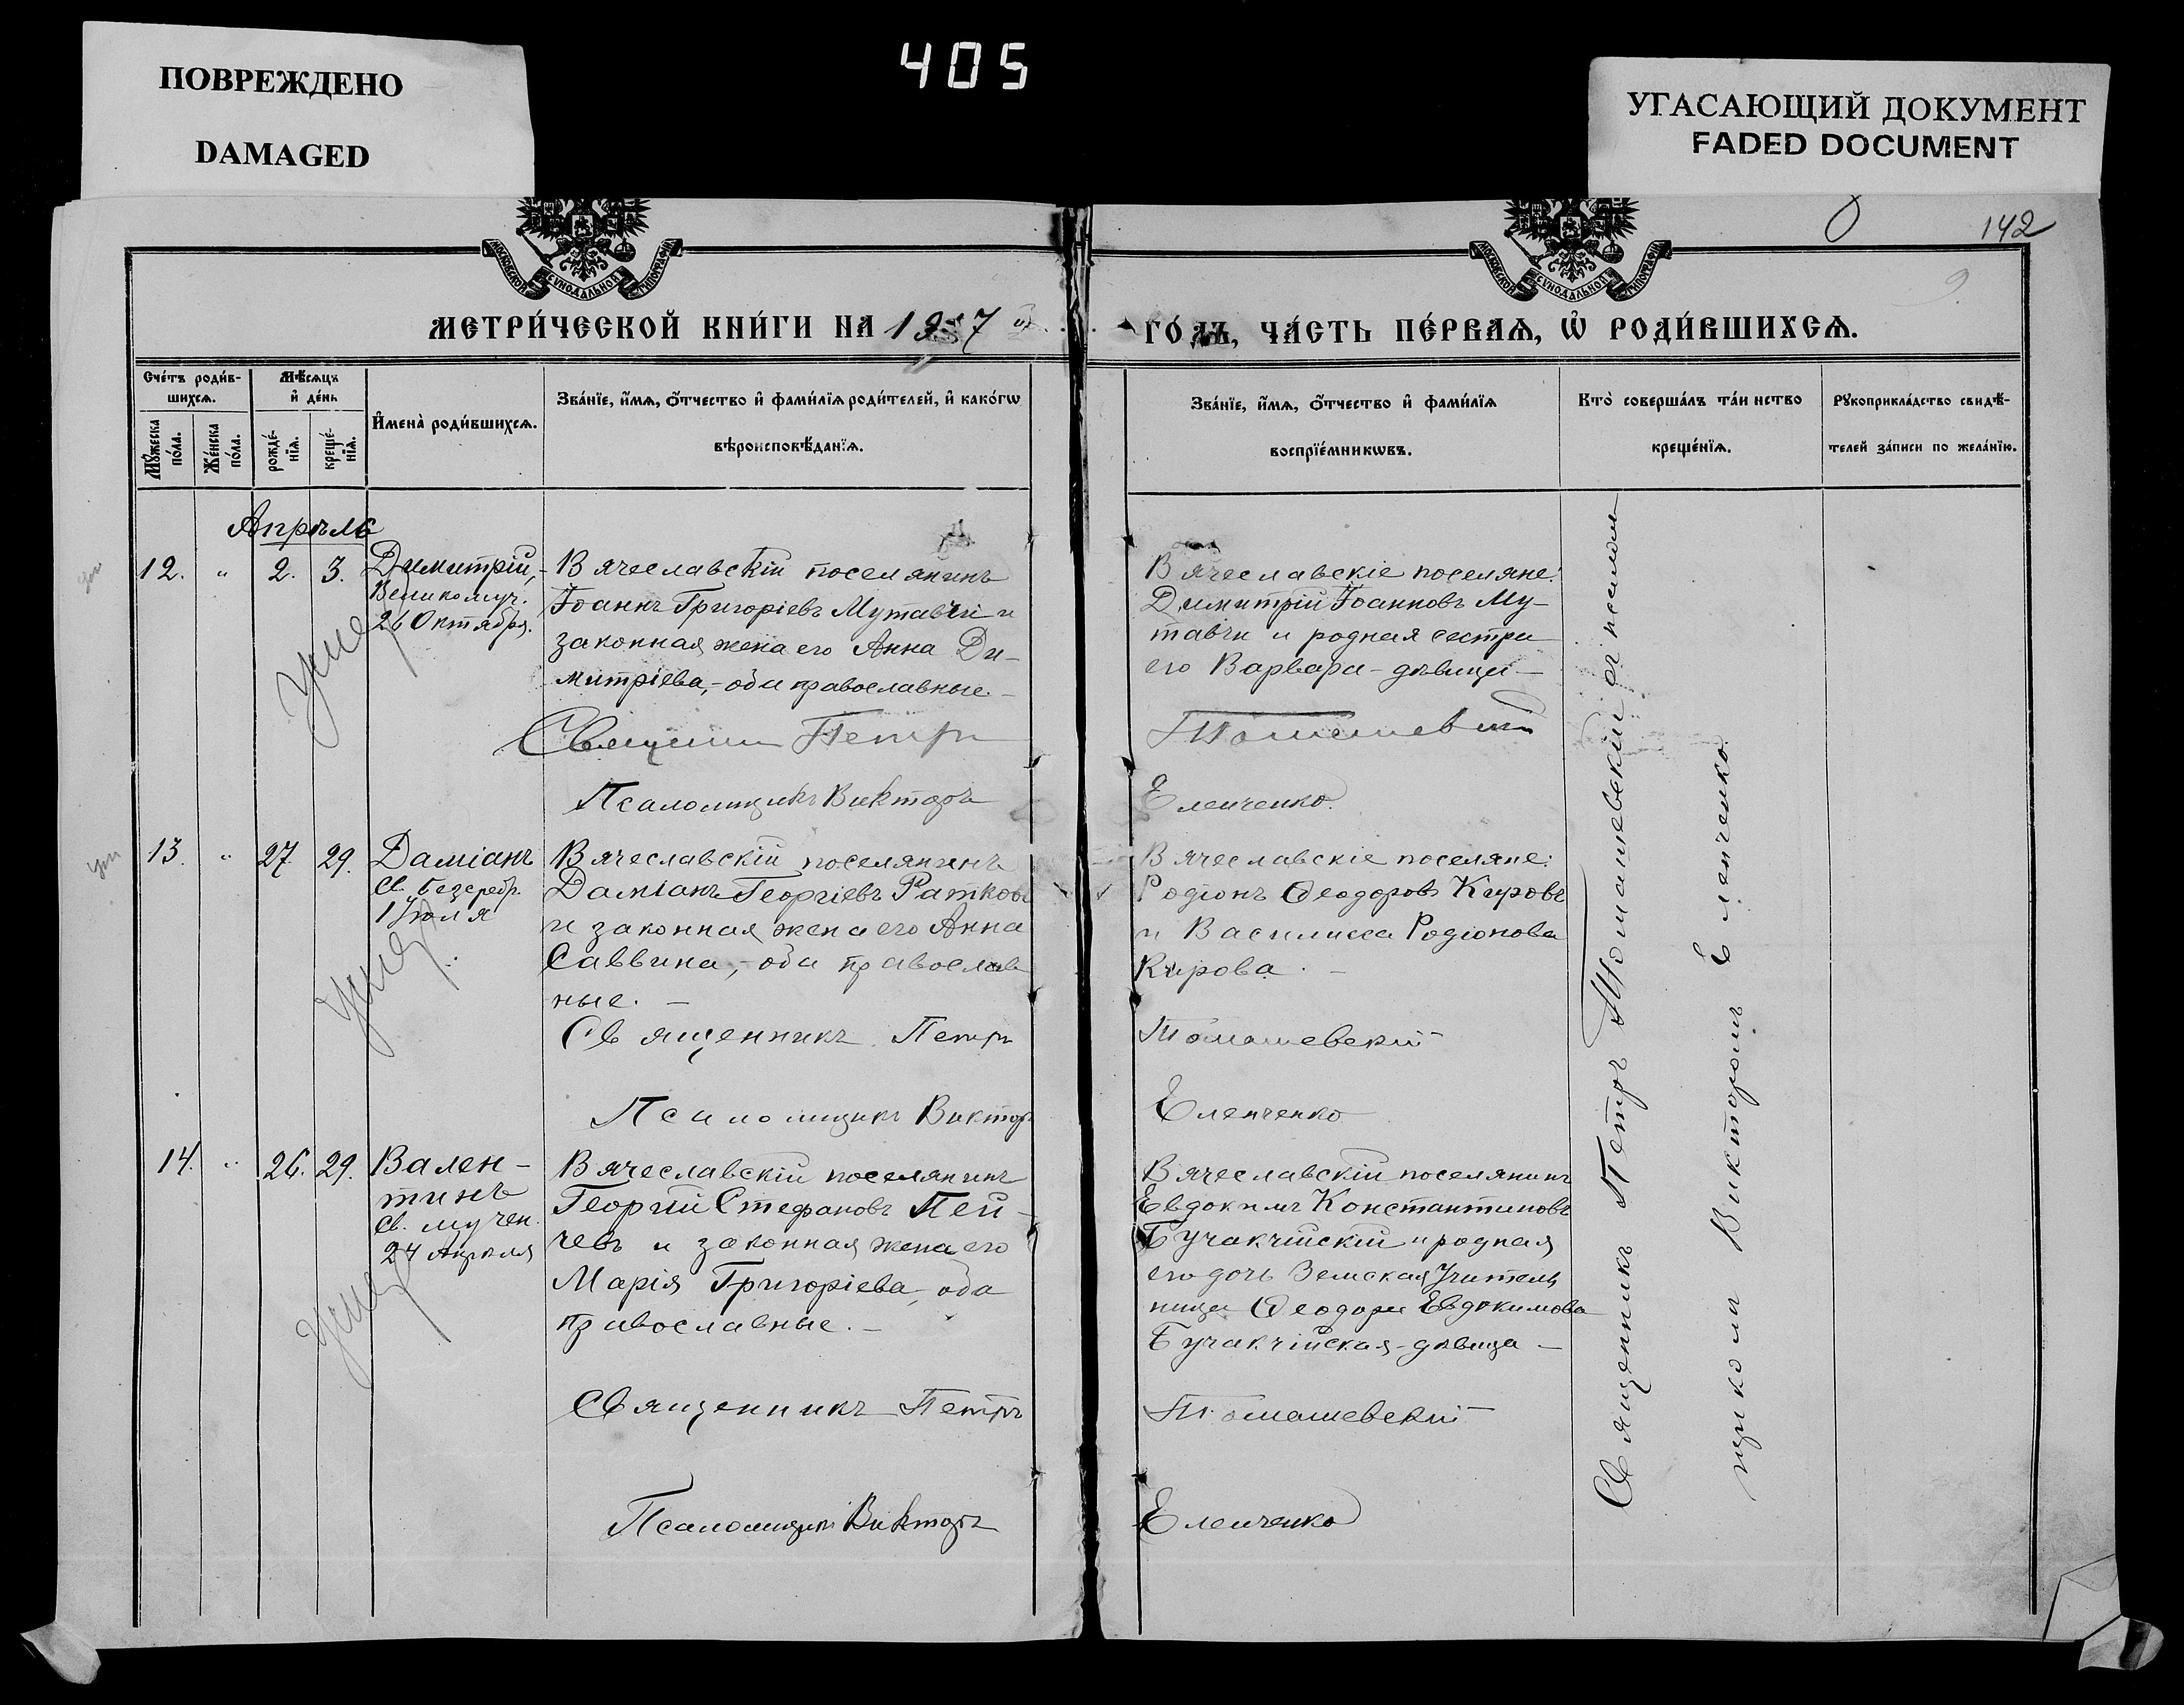 405
ПОВРЕЖДЕНО
DAMAGED
УГАСАЮЩИЙ ДОКУМЕНТ
FADED DOCUMENT
142
МОСКОВСКОЙ СѴНОДАЛЬНОЙ ТИПОГРАФІИ
МОСКОВСКОЙ СѴНОДАЛЬНОЙ ТИПОГРАФІИ
МЕТРИ́ЧЕСКОЙ КНИ́ГИ НА 1907
ГО́ДЪ, ЧА́СТЬ ПЕ́РВАЯ, Ѡ҆ РОДИ́ВШИХСЯ.
Сче́тъ роди́в-
шихся.
Му́жеска по́ла.
Же́нска по́ла.
Мѣ́сяцъ
и҆ де́нь
рожде́-
нїя.
креще́-
нїя.
И҆мена̀ роди́вшихся.
Зва́нїе, и҆́мя, ѻ҆́тчество и҆ фами́лїя роди́телей, и҆ како́гѡ
вѣроисповѣ́данїя.
Зва́нїе, и҆́мя, ѻ҆́тчество и҆ фами́лїя
воспрїе́мникѡвъ.
Кто̀ соверша́лъ та́инство
креще́нїя.
Рꙋкоприкла́дство свидѣ́-
телей за́писи по жела́нїю.
Апрѣль
12. " 2. 3. Димитрій,
Великомуч.
26 Октября.
Вячеславскій поселянинъ
Іоаннъ Григоріевъ Мутавчи и
законная жена его Анна Ди-
митріева,- оба православные.-
Священникъ Петръ
Псаломщикъ Викторъ
Вячеславскіе поселяне:
Димитрій Іоанновъ Му-
тавчи и родная сестра
его Варвара - дѣвица -
Томашевскій
Еленченко.
Умер
13. " 27. 29. Даміанъ
Св. безсребр.
1 Іюля
Вячеславскій поселянинъ
Даміанъ Георгіевъ Ратковъ
и законная жена его Анна
Саввина,- оба православ
ные. -
Священникъ Петръ
Псаломщикъ Виктор
Вячеславскіе поселяне:
Родіонъ Ѳеодоровъ Кировъ
и Василисса Родіонова
Кирова. -
Томашевскій
Еленченко
Умер
14. " 26. 29. Вален-
тинъ
Св. мучен.
24 Апрѣля
Вячеславскій поселянинъ
Георгій Стефановъ Пей-
чевъ и законная жена его
Марія Григоріева, оба
православные. -
Священникъ Петръ
Псаломщикъ Викторъ
Вячеславскій поселянинъ
Евдокимъ Константиновъ
Бучакчійскій и родная
его дочь Земская Учитель
ница Ѳеодора Евдокимова
Бучакчійская - дѣвица -
Томашевскій
Еленченко
Умер
Священникъ Петръ Томашевскій съ псалом
щикомъ Викторомъ Еленченко